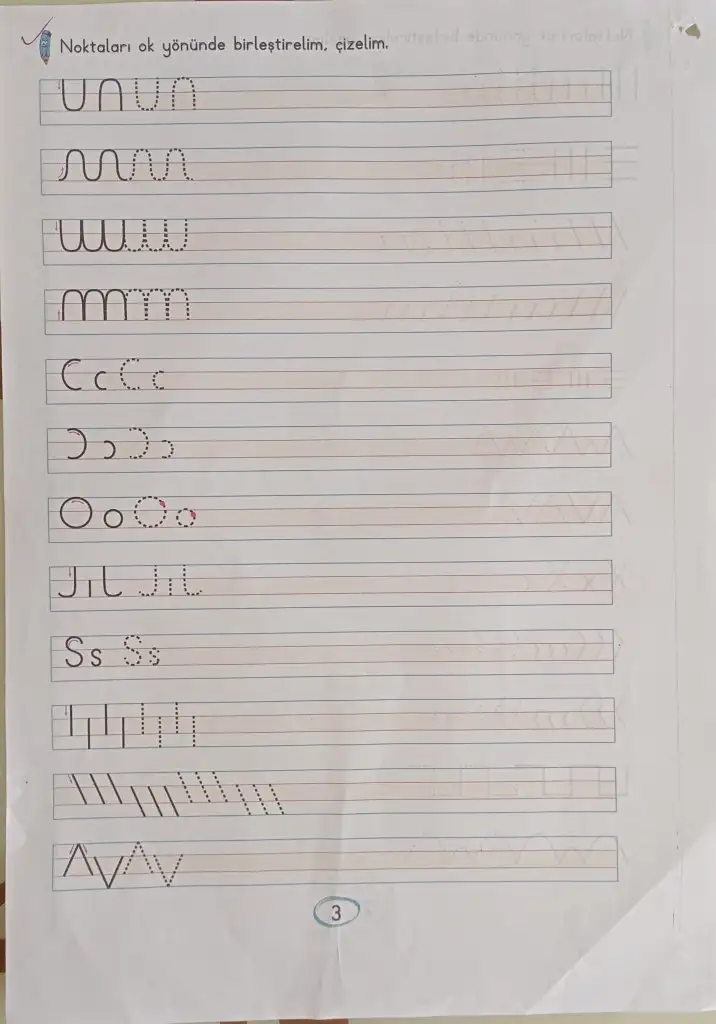 Noktaları ok yönünde birleştirelim, çizelim.
C c C c
O o O o
S s S s
3